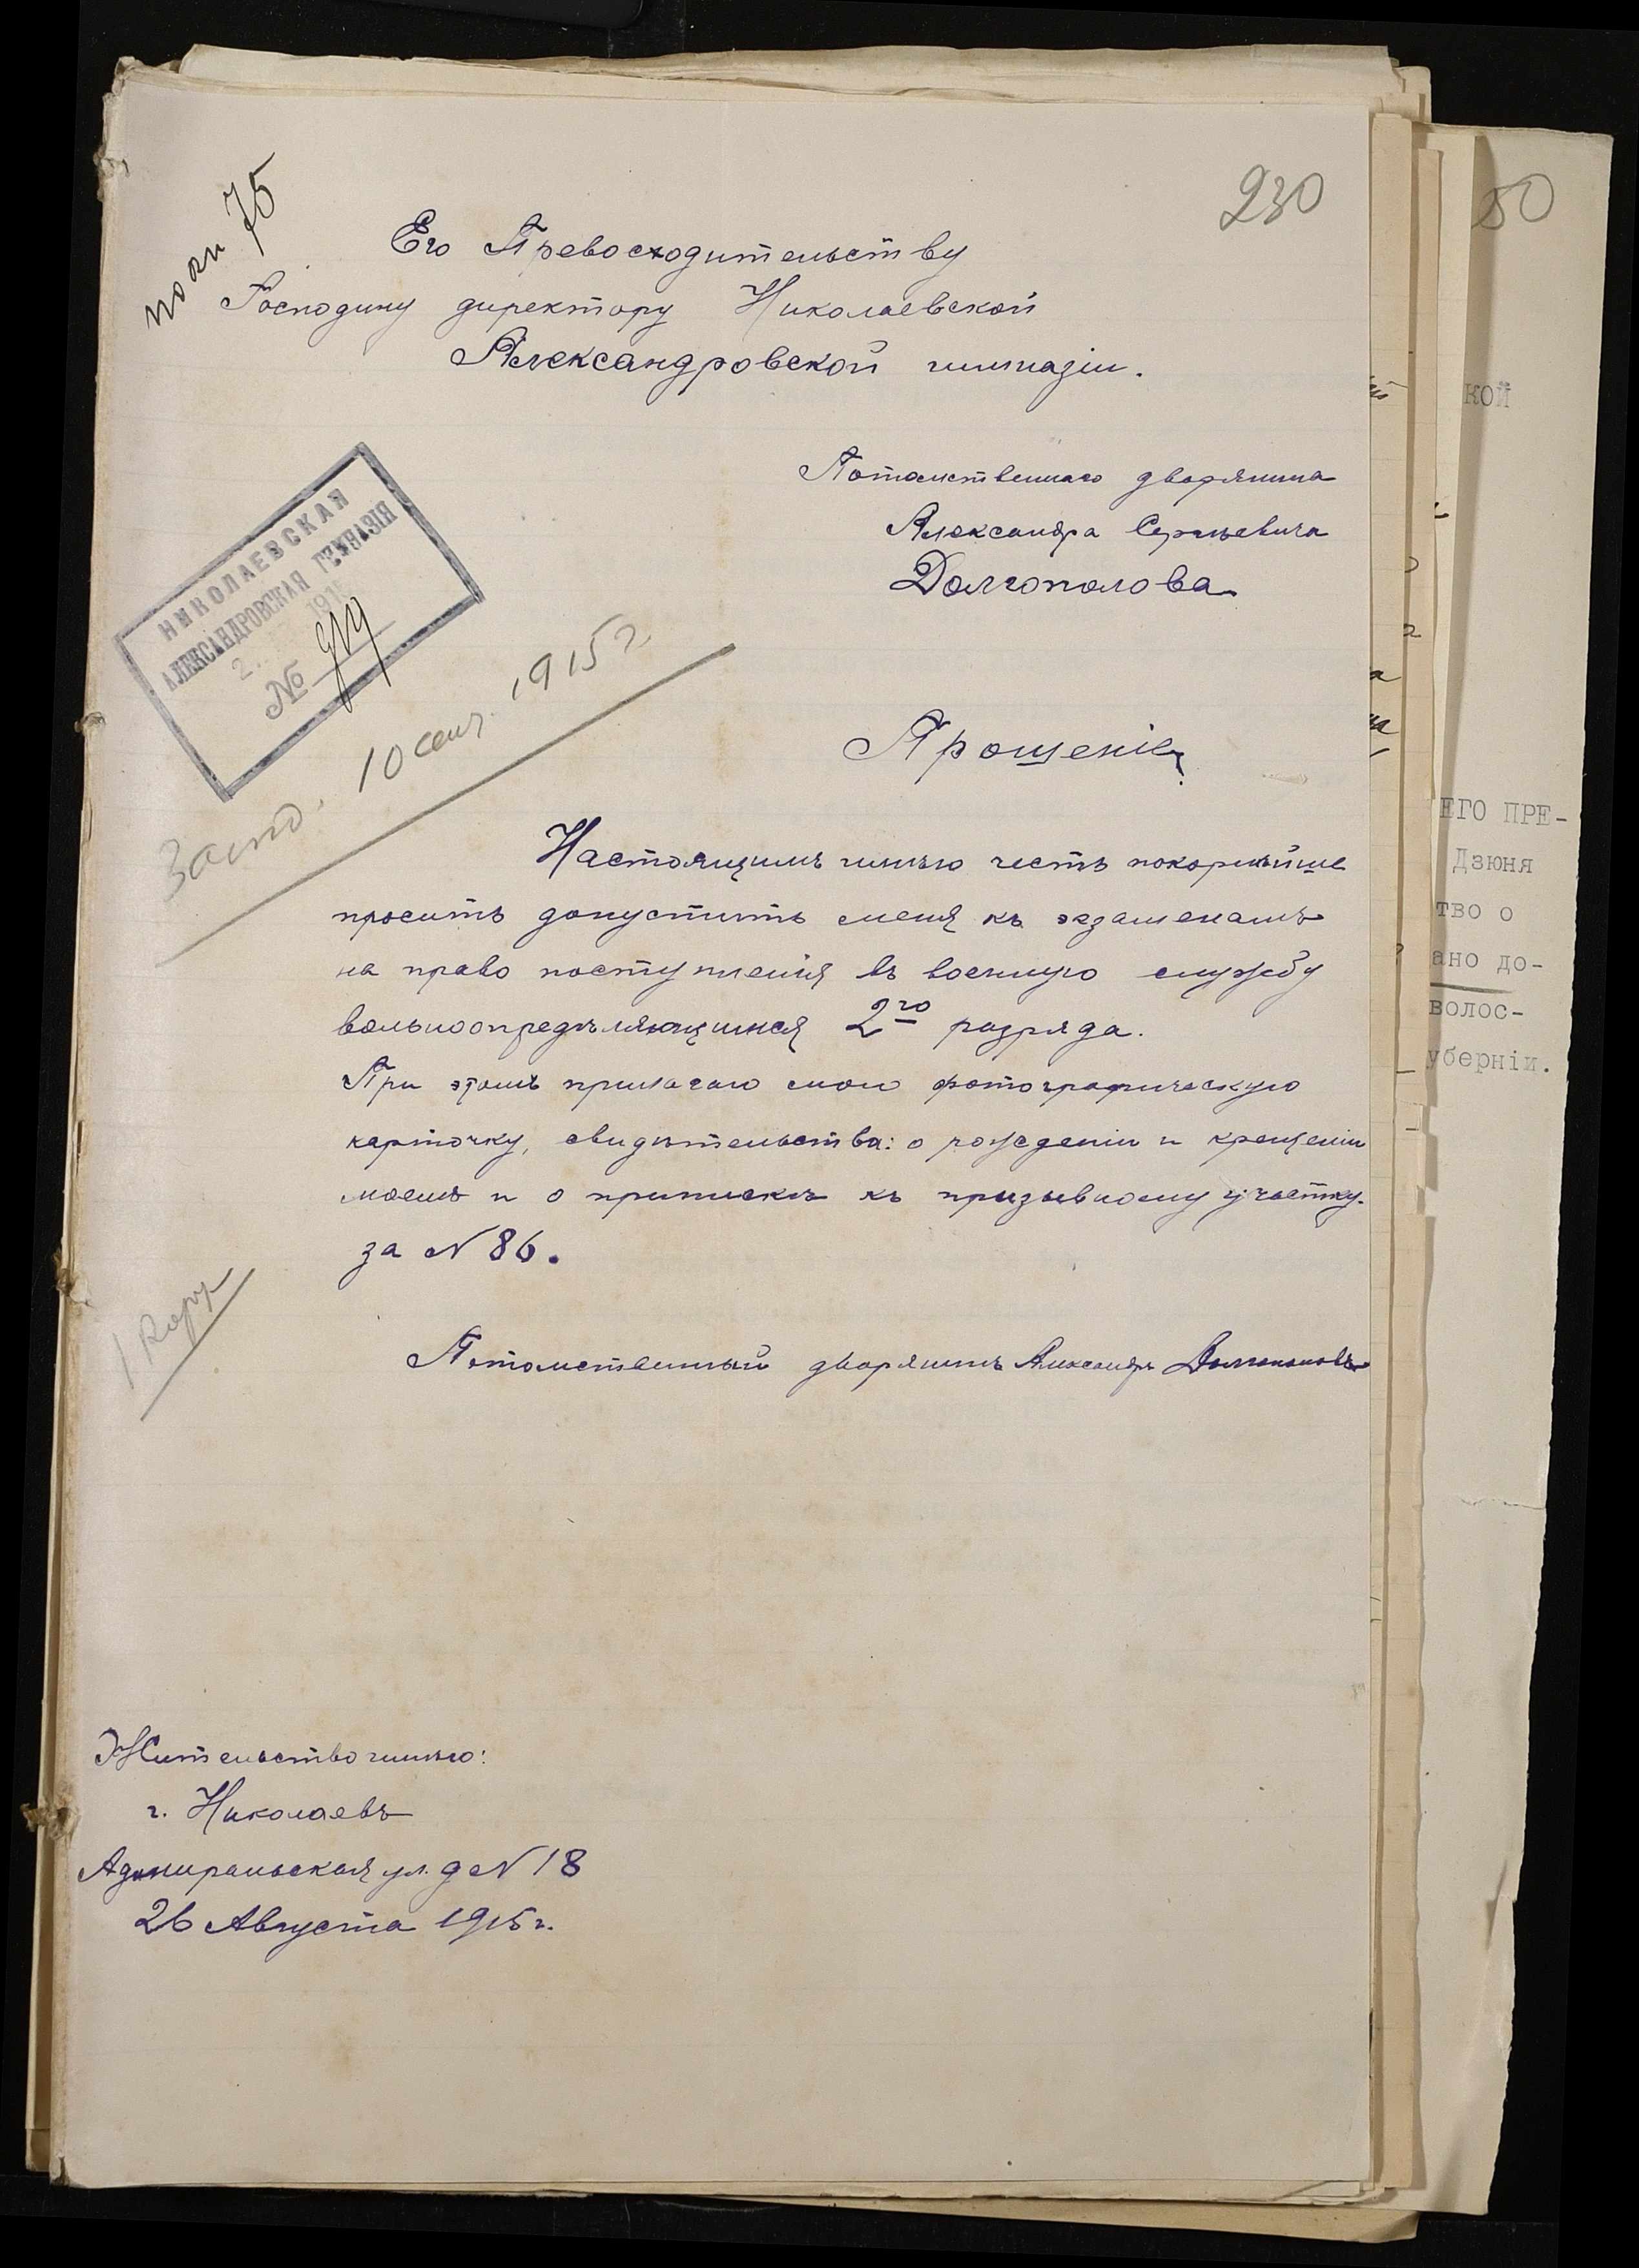 230
75
Его Превосходительству
Господину директору Николаевской
Александровской гимназіи.
Потомственнаго дворянина
Александра Сергѣевича
Долгополова
НИКОЛАЕВСКАЯ
АЛЕКСАНДРОВСКАЯ ГИМНАЗІЯ
№
10 сент. 1915 г
Прошеніе
Настоящимъ имѣю честь покорнѣйше
просить допустить меня къ экзаменамъ
на право поступленія въ военную службу
вольноопредѣляющимся 2го разряда.
При этомъ прилагаю мою фотографическую
карточку, свидѣтельства: о рожденіи и крещеніи
моемъ и о припискѣ къ призывному участку
за N 86.
Потомственный дворянинъ Александръ Долгополовъ
Жительство имѣю:
г. Николаевъ
Адмиральская ул. д N 18
26 Августа 1915 г.
50
кой
ЕГО ПРЕ-
Дзюня
тво о
ано до-
волос-
уберніи.